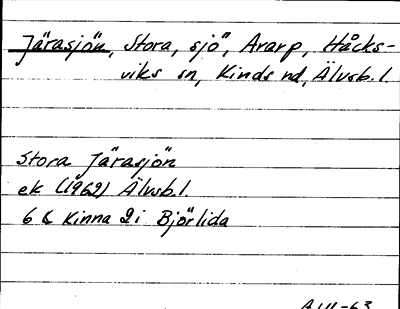 Järasjön, Stora, sjö, Ararp, Håcks-
viks sn, Kinds hd, Älvsb. l.
Stora Järasjön
ek (1962) Älvsb. l.
6 C Kinna 2 i Björlida